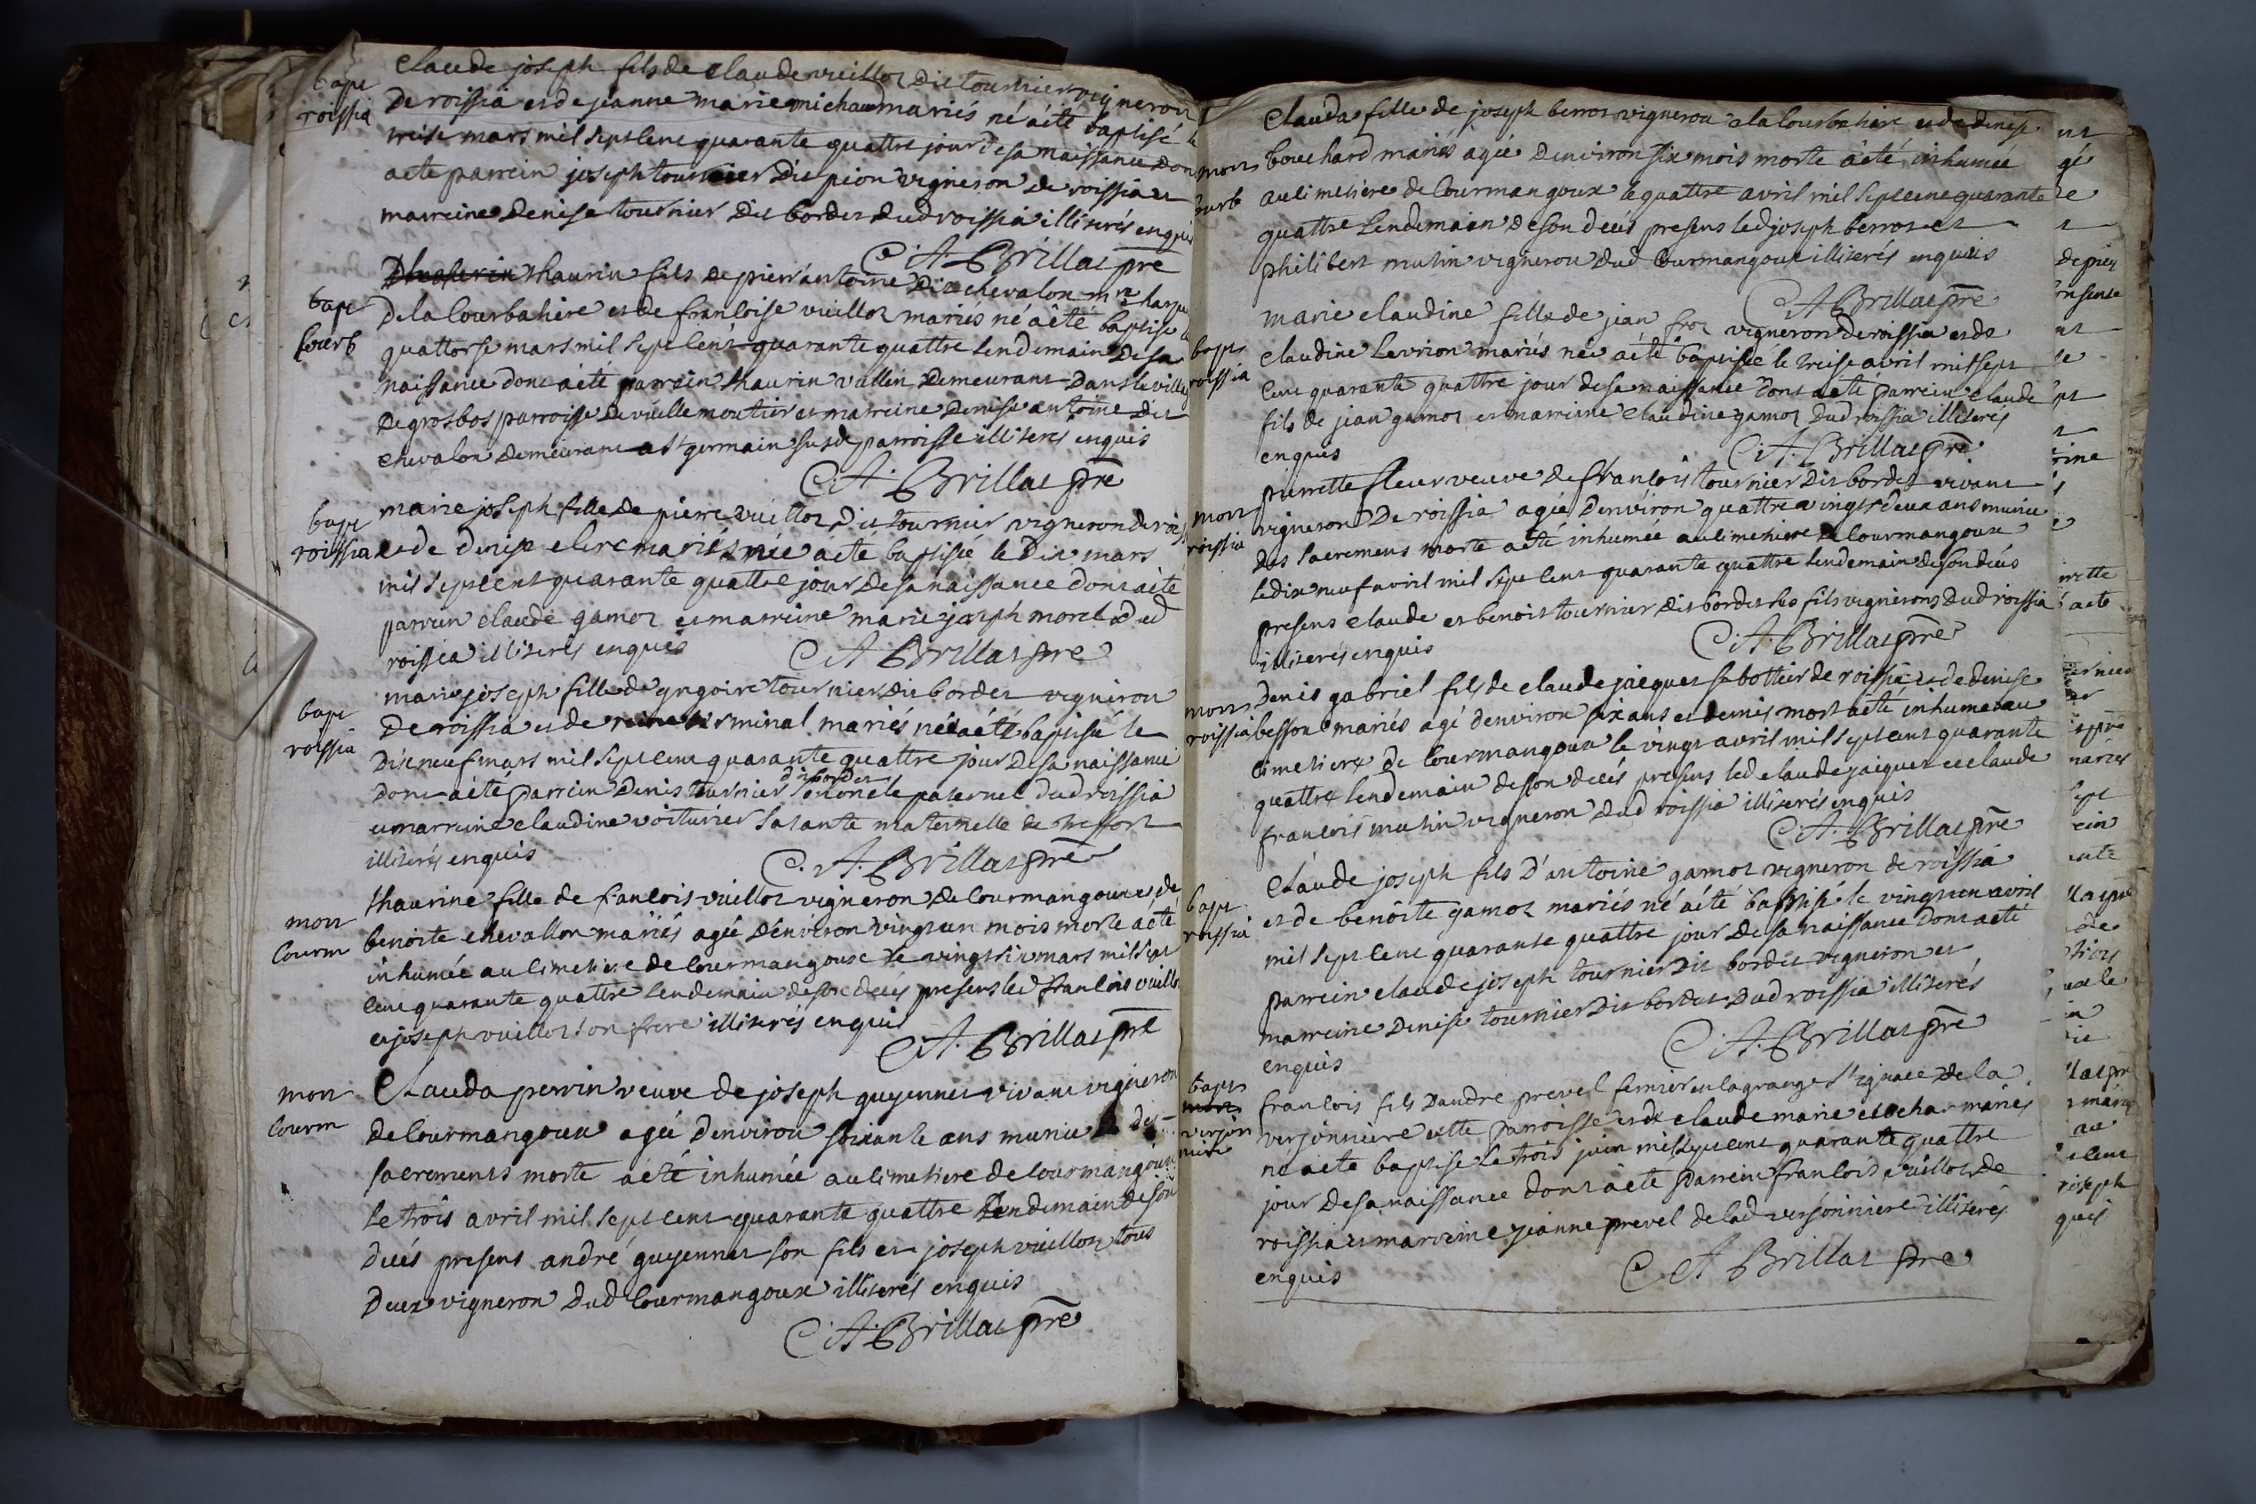 bapt
roissia
claude joseph fils de claude vuillot dit tournier vigneron
de roissia et de jeanne marie michaud mariés né a été baptisé le
treise mars mil sept cent quarante quattre jour de sa naissance dont
a ete parrein joseph tournier dit pion vigneron de roissia et
marreine denise tournier dit bordet dud roissia illiterés enquis
C. A. Brillat pre
bapt
courb
thaurin fils de pierr antoine dit chevalon mre charp
de la courbatiere et de françoise vuillot mariés né a été baptisé le
quattorse mars mil sept cent quarante quattre lendemain de sa
naissance dont a eté parrein thaurin vallin demeurant dans le village
de grosbos parroisse de vieillemoutier et marreine denise antoine dit
chevalon demeurant a st germain susde parroisse illiterés enquis
C. A. Brillat pre
bapt
roissia
marie joseph fille de pierre vuillot dit tournier vigneron de roiss
et de denise clerc mariés née a été baptisée le dix mars
mil sept cent quarante quattre jour de sa naissance dont a ete
parrein claude gamot et marreine marie joseph morel dud
roissia illiterés enquis
C. A. Brillat pre
bapt
roissia
marie joseph fille de gregoire tournier dit bordet vigneron
de roissia et de minal mariés née a été baptisée le
dix neuf mars mil sept cent quarante quattre jour de sa naissance
dit bordet
dont a été parrein denis tournier son oncle paternel dud roissia
et marreine claudine voiturier sa tante maternelle de treffort
illiterés enquis
C. A. Brillat pre
mort
courm
thaurine fille de françois vuillot vigneron de courmangoux et de
benoite chevallon mariés agée d'environ vingt un mois morte a été
inhumée au cimetiere de courmangoux le vingt six mars mil sept
cent quarante quattre lendemain de son decés presens led françois vuillot
et joseph vuillot son frere illiterés enquis
C. A. Brillat pre
mort
courm
Clauda perrin veuve de joseph guyennet vivant vigneron
de courmangoux agée d'environ soixante ans munie des
sacremens morte a été inhumée au cimetiere de courmangoux
le trois avril mil sept cent quarante quattre lendemain de son
decés presens andré guyennet son fils et joseph vuillot tous
deux vigneron dud courmangoux illiterés enquis
C. A. Brillat pre
mort
courb
Clauda fille de joseph berrot vigneron a la courbatiere et de denise
bouchard mariés agée d'environ six mois morte a été inhumée
au cimetiere de courmangoux le quattre avril mil sept cent quarante
quattre lendemain de son decés presens led joseph berrot et
philibert mutin vigneron dud courmangoux illiterés enquis
C. A. Brillat pre
bapt
roissia
marie claudine fille de jean froz vigneron de roissia et de
claudine levrion mariés née a été baptisée le treise avril mil sept
cent quarante quattre jour de sa naissance dont a eté parrein claude
fils de jean gamot et marreine claudine gamot dud roissia illiterés
enquis
C. A. Brillat pre
mort
roissia
pierrette fleur veuve de françois tournier dit bordet vivant
vigneron de roissia agée d'environ quattre vingt deux ans munie
des sacremens morte a été inhumée au cimetiere de courmangoux
le dix neuf avril mil sept cent quarante quattre lendemain de son decés
presens claude et benoit tournier dit bordet ses fils vignerons dud roissia
illiterés enquis
C. A. Brillat pre
mort
roissia
Denis gabriel fils de claude jacquet sabottier de roissia et de denise
besson mariés agé d'environ six ans et demis mort a été inhumé au
cimetiere de courmangoux le vingt avril mil sept cent quarante
quattre lendemain de son decés presens led claude jacquet et claude
françois mutin vigneron dud roissia illiterés enquis
C. A. Brillat pre
bapt
roissia
Claude joseph fils d'antoine gamot vigneron de roissia
et de benoite gamot mariés né a été baptisé le vingt un avril
mil sept cent quarante quattre jour de sa naissance dont a eté
parrein claude joseph tournier dit bordet vigneron et
marreine denise tournier dit bordet dud roissia illiterés
enquis
C. A. Brillat pre
bapt
mort
verjon
niere
françois fils d'andre prevel fermier en la grange st ignace de la
verjonniere cette parroisse et de claude marie cochar mariés
né a ete baptisé le trois juin mil sept cent quarante quattre
jour de sa naissance dont a ete parrein françois vuillot de
roissia et marreine jeanne prevel de lad verjonniere illiterés
enquis
C. A. Brillat pre